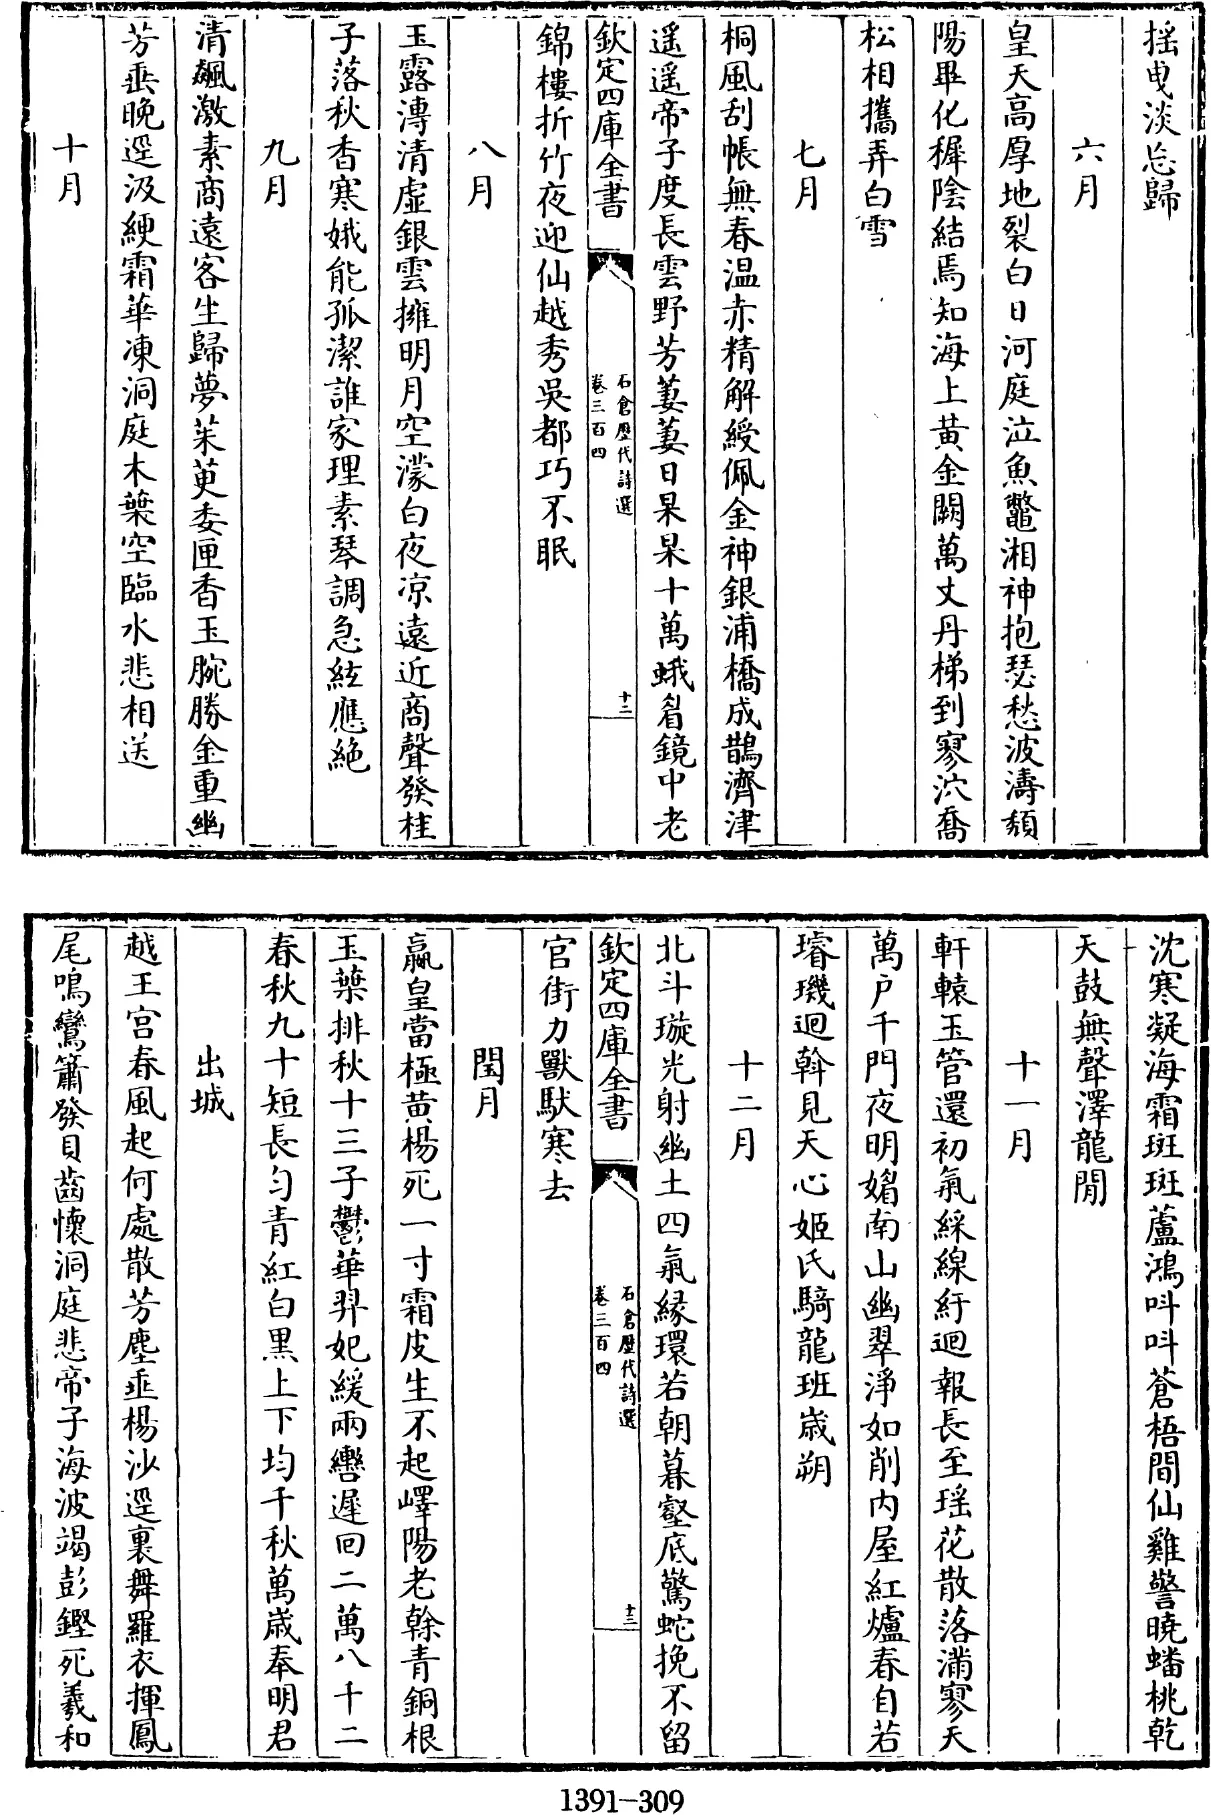 搖曳淡忘歸
六月
皇天高厚地裂白日河庭泣魚鼈湘神抱瑟愁波濤頽
陽畢化穉陰結焉知海上黄金闕萬丈丹梯到寥泬喬
松相攜弄白雪
七月
桐風刮帳無春温赤精解綬佩金神銀浦橋成鵲濟津
遥遥帝子度長雲野芳萋萋日杲杲十萬蛾眉鏡中老
欽定四庫全書
石倉歴代詩選
卷三百四
十二
錦樓折竹夜迎仙越秀吳都巧不眠
八月
玉露漙清虛銀雲擁明月空濛白夜凉遠近商聲發桂
子落秋香寒娥能孤潔誰家理素琴調急絃應絶
九月
清飇激素商遠客生歸夢茱萸委匣香玉腕勝金重幽
芳垂晚逕汲綆霜華凍洞庭木葉空臨水悲相送
十月
沈寒凝海霜斑斑蘆鴻呌呌蒼梧間仙雞警曉蟠桃乾
天鼓無聲澤龍閒
十一月
軒轅玉管還初氣綵線紆迴報長至瑶花散落滿寥天
萬户千門夜明媚南山幽翠淨如削内屋紅爐春自若
璿璣迴斡見天心姬氏騎龍班歳朔
十二月
北斗璇光射幽土四氣縁環若朝暮壑底驚蛇挽不留
欽定四庫全書
石倉歴代詩選
卷三百四
十三
官街力獸䭾寒去
閏月
羸皇當極黄楊死一寸霜皮生不起嶧陽老榦青銅根
玉葉排秋十三子鬱華羿妃緩兩轡遲回二萬八千二
春秋九十短長匀青紅白黒上下均千秋萬歳奉明君
出城
越王宫春風起何處散芳塵垂楊沙逕裏舞羅衣揮鳳
尾鳴鸞簫發貝齒懷洞庭悲帝子海波竭彭鏗死羲和
1391-309